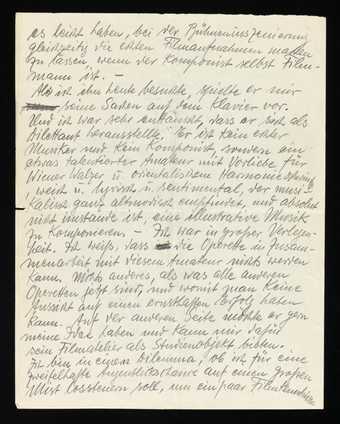 es leicht haben, bei der Bühneninszenierung
gleichzeitig die echten Filmaufnahmen machen
zu lassen, wenn der Komponist selbst Film-
mann ist. —
Als ich ihn heute besuchte, spielte er mir
seine Sachen auf dem Klavier vor.
Und ich war sehr enttäuscht, dass er sich als
Dilettant herausstellte. Er ist kein echter
Musiker und kein Komponist, sondern ein
etwas talentierter Amateur mit Vorliebe für
Wiener Walzer u. orientalischen
weich u. lyrisch u. sentimental, der musi-
kalisch ganz altmodisch empfindet, und absolut
nicht imstande ist, eine illustrative Musik
zu Komponieren. — Ich war in großer Verlegen-
heit. Ich weiß, dass die Operette in Zusam-
menarbeit mit diesem Amateur nichts werden
kann. Nichts anderes, als was alle anderen
Operetten jetzt sind, und womit man keine
Aussicht auf einen ernsthaften Erfolg haben
kann. Auf der anderen Seite möchte er gern
meine Idee haben und kann mir dafür
sein Filmatelier als Studienobjekt bieten.
Ich bin in einem Dilemma, ob ich für eine
zweifelhafte auf einen großen
Mist lossteuern soll, um ein paar